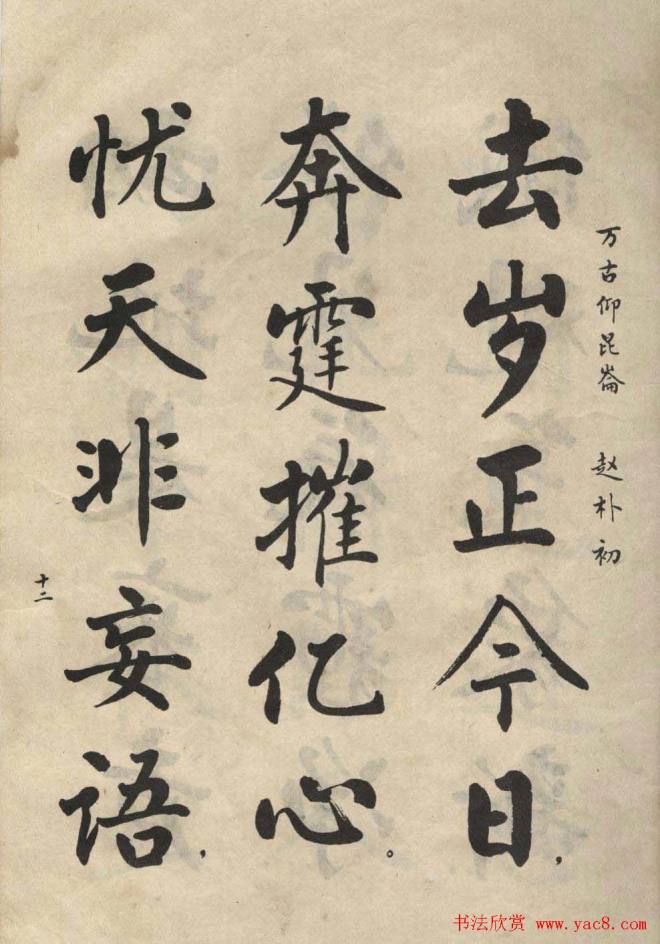 万古仰昆崙 赵朴初
去岁正今日，
奔霆摧亿心。
忧天非妄语，
十二
书法欣赏 www.yac8.com